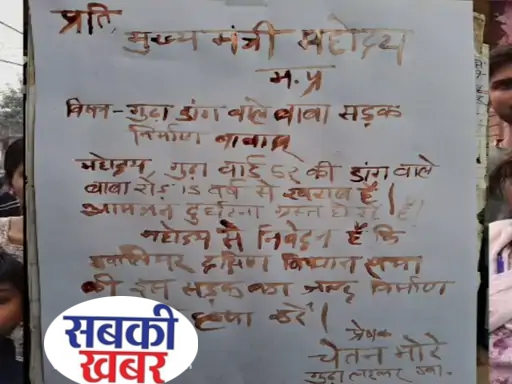 प्रति,
मुख्य मंत्री महोदय
म.प्र
विषय - गुढ़ा डांग वाले बाबा सड़क
निर्माण बाबत्
महोदय गुढ़ा वार्ड 52 की डांग वाले
बाबा रोड़ 15 वर्ष से खराब है।
आमजन दुर्घटना ग्रस्त हो रहे है।
महोदय से निवेदन है कि
ग्वालियर दक्षिण विधान सभा
की इस सड़क का जल्द निर्माण
कृपा करें।
प्रेषक
चेतन मोरे
गुढ़ा लश्कर
सबकी
खबर